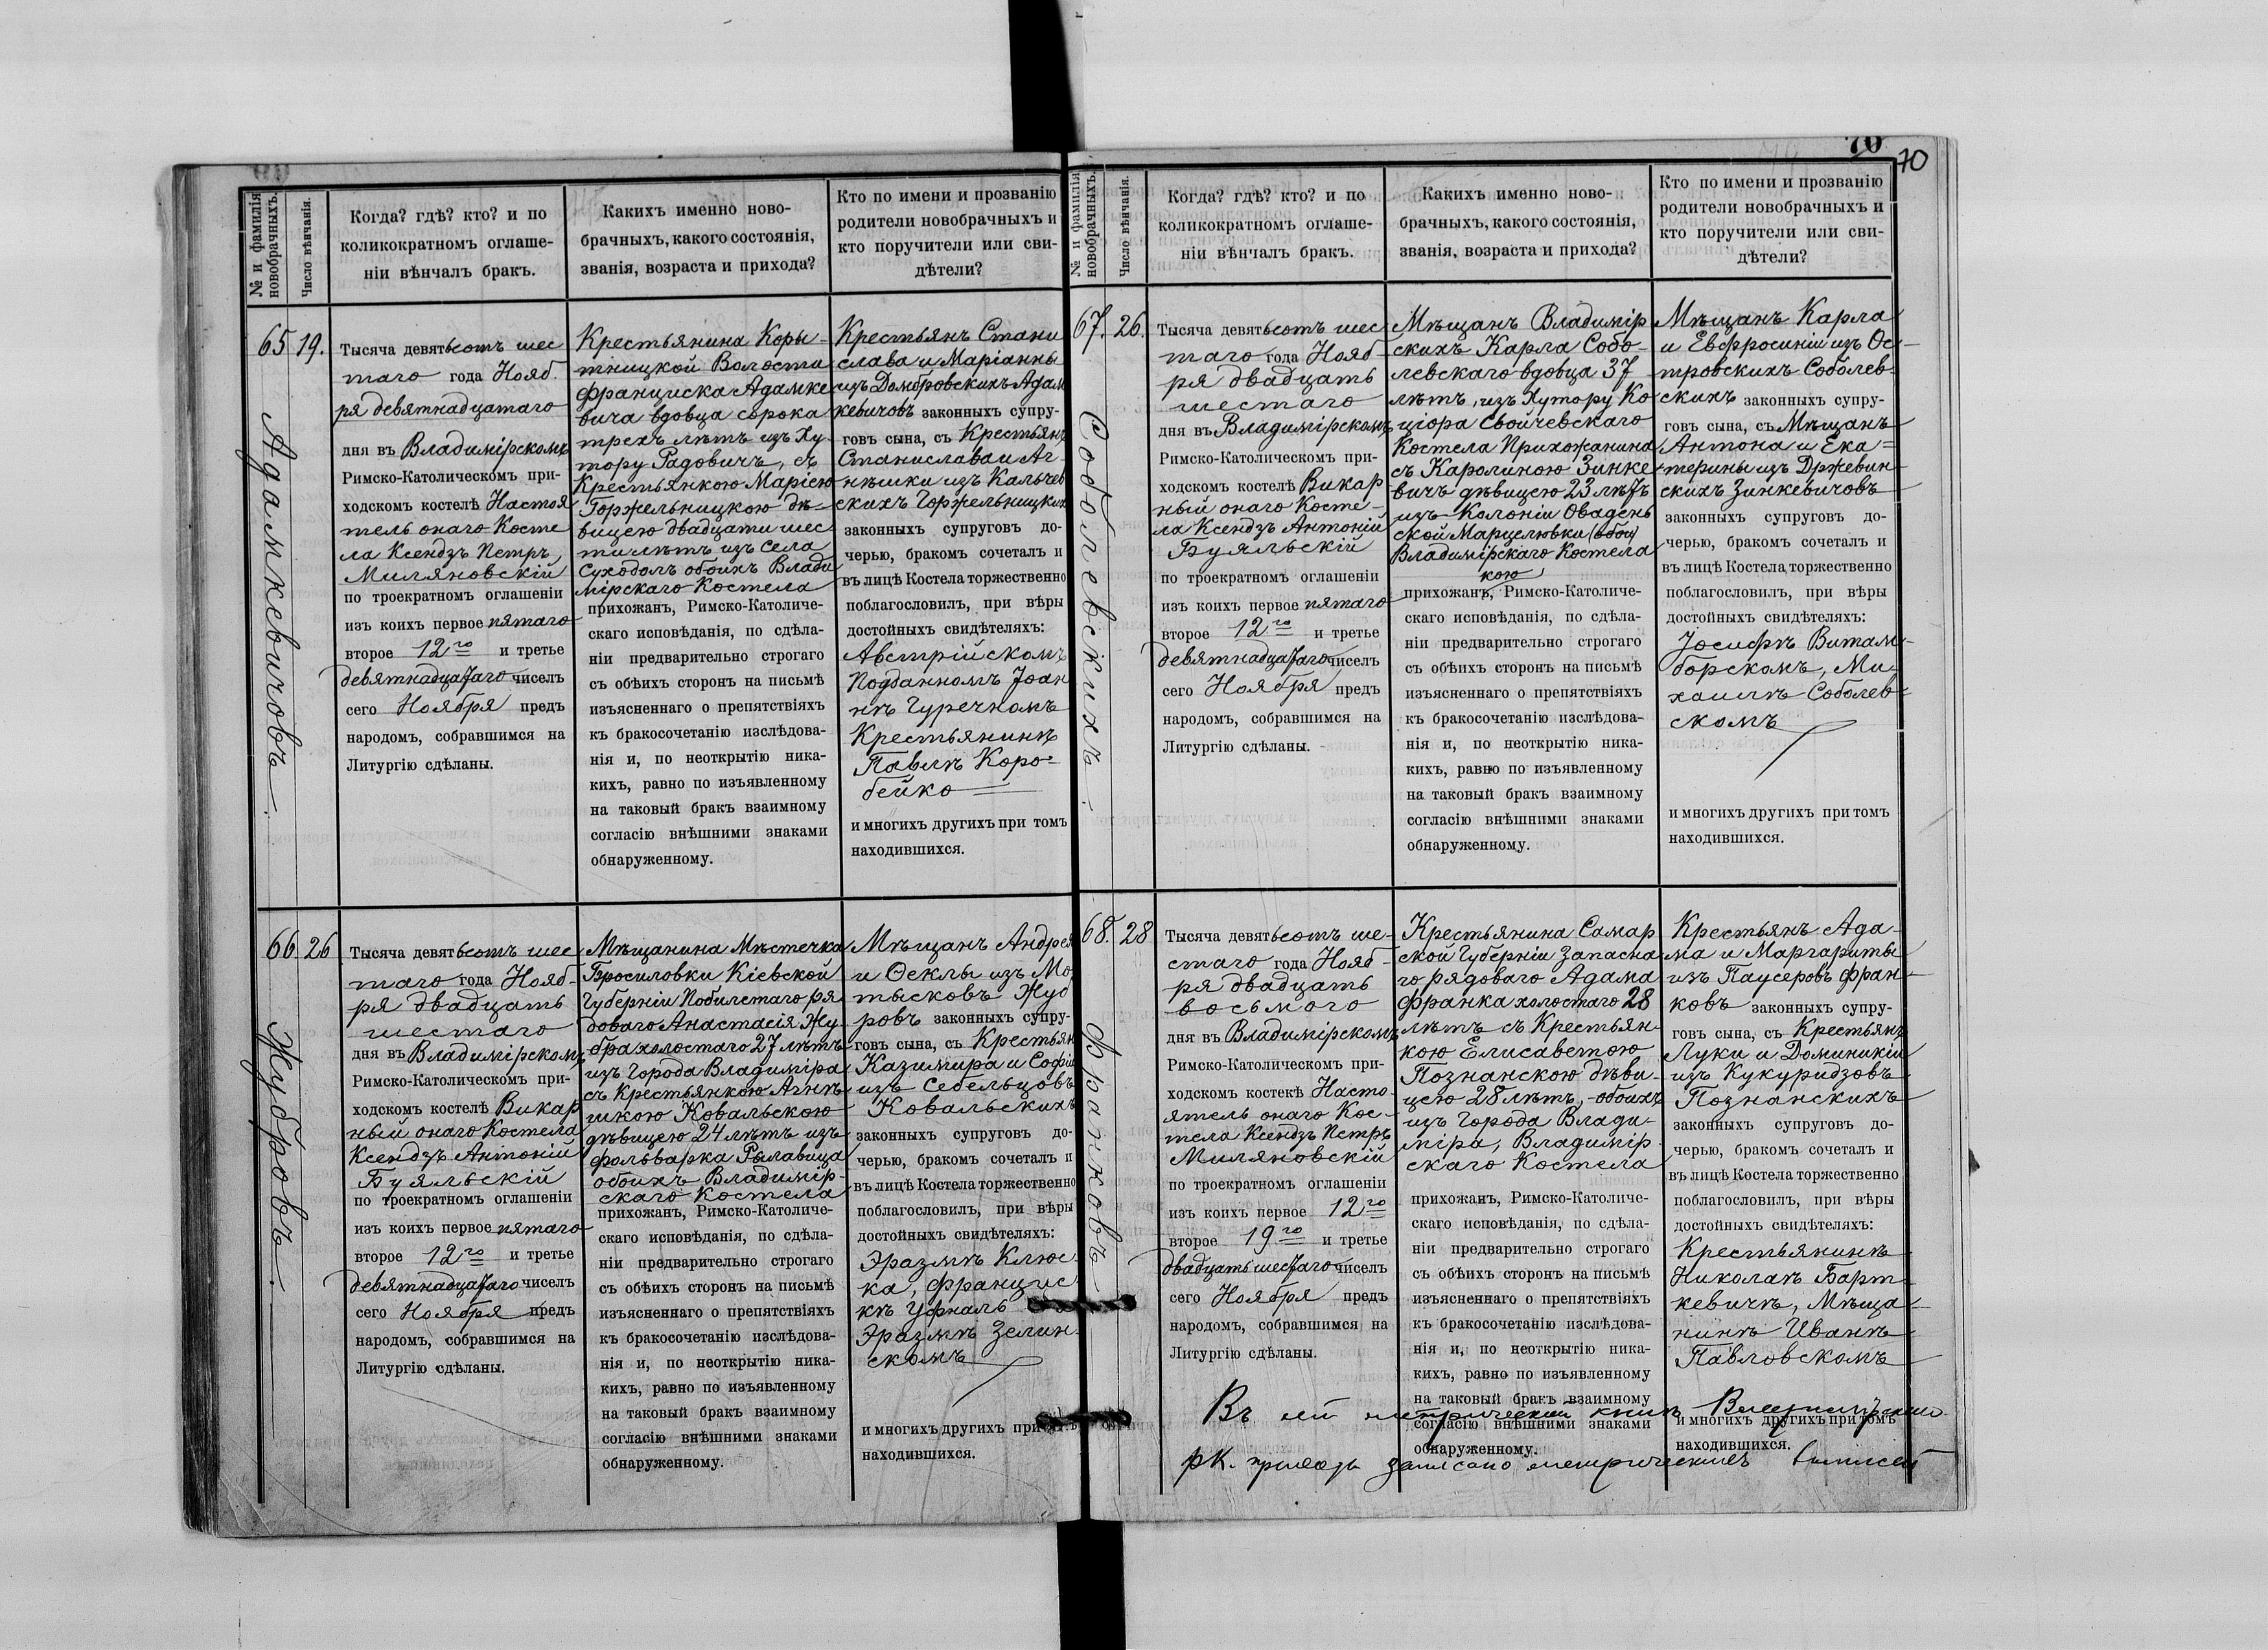 70
70
№ и фамилія новобрачныхъ.
Число вѣнчанія.
Когда? гдѣ? кто? и по
коликократномъ оглаше-
ніи вѣнчалъ бракъ.
Какихъ именно ново-
брачныхъ, какого состоянія,
званія, возраста и прихода?
Кто по имени и прозванію
родители новобрачныхъ и
кто поручители или сви-
дѣтели?
65
19.
Адамкевичовъ.
Тысяча девятьсотъ шес
таго года Нояб.
ря девятнадцатаго
дня въ Владимірскомъ
Римско-Католическомъ при-
ходскомъ костелѣ Настоя
тель онаго Косте
ла Ксендзъ Петръ
Миляновскій
по троекратномъ оглашеніи
изъ коихъ первое пятаго
второе 12го и третье
девятнадцатаго чиселъ
сего Ноября предъ
народомъ, собравшимся на
Литургію сдѣланы.
Крестьянина Коры-
тницкой Волости
Франциска Адамке
вича вдовца сорока
трехъ лѣтъ изъ Ху
тору Радовичъ, съ
Крестьянкою Маріею
Горжельницкою дѣ-
вицею двадцати шес
ти лѣтъ изъ села
Суходолъ обоихъ Влади
мірскаго Костела
прихожанъ, Римско-Католиче-
скаго исповѣданія, по сдѣла-
ніи предварительно строгаго
съ обѣихъ сторонъ на письмѣ
изъясненнаго о препятствіяхъ
къ бракосочетанію изслѣдова-
нія и, по неоткрытію ника-
кихъ, равно по изъявленному
на таковый бракъ взаимному
согласію внѣшними знаками
обнаруженному.
Крестьянъ Стани
слава и Маріанны
изъ Домбровскихъ Адам
кевичовъ законныхъ супру-
говъ сына, съ Крестьянъ
Станислава и Аг-
нѣшки изъ Кальчев
скихъ Горжельницкихъ
законныхъ супруговъ до-
черью, бракомъ сочеталъ и
въ лицѣ Костела торжественно
поблагословилъ, при вѣры
достойныхъ свидѣтеляхъ:
Австрійскомъ
Подданномъ Іоан
нѣ Гуречномъ
Крестьянинѣ
Павлѣ Коро-
бейко
и многихъ другихъ при томъ
находившихся.
66.
26
Жубровъ.
Тысяча девятьсотъ шес
таго года Нояб-
ря двадцать
шестаго
дня въ Владимірскомъ
Римско-Католическомъ при-
ходскомъ костелѣ Викар
ный онаго Костела
Ксендзъ Антоній
Буяльскій
по троекратномъ оглашеніи
изъ коихъ первое пятаго
второе 12го и третье
девятнадцатаго чиселъ
сего Ноября предъ
народомъ, собравшимся на
Литургію сдѣланы.
Мѣщанина Мѣстечка
Бросиловки Кіевской
Губерніи Побилетаго ря
доваго Анастасія Жу-
бра холостаго 27 лѣтъ
изъ города Владиміра
съ Крестьянкою Агнѣ
шкою Ковальскою
дѣвицею 24 лѣтъ изъ
фольварка Рылавица
обоихъ Владимір-
скаго Костела
прихожанъ, Римско-Католиче-
скаго исповѣданія, по сдѣла-
ніи предварительно строгаго
съ обѣихъ сторонъ на письмѣ
изъясненнаго о препятствіяхъ
къ бракосочетанію изслѣдова-
нія и, по неоткрытію ника-
кихъ, равно по изъявленному
на таковый бракъ взаимному
согласію внѣшними знаками
обнаруженному.
Мѣщанъ Андрея
и Ѳеклы изъ Мо
тысковъ Жуб
ровъ законныхъ супру-
говъ сына, съ Крестьян
Казимира и Софіи
изъ Себельцовъ
Ковальскихъ
законныхъ супруговъ до-
черью, бракомъ сочеталъ и
въ лицѣ Костела торжественно
поблагословилъ, при вѣры
достойныхъ свидѣтеляхъ:
Эразмѣ Клюс-
ка, Францис
кѣ Уфналь
Эразмѣ Зелин-
скомъ
и многихъ другихъ при
находившихся.
№ и фамилія новобрачныхъ.
Число вѣнчанія.
Когда? гдѣ? кто? и по
коликократномъ оглаше-
ніи вѣнчалъ бракъ.
Какихъ именно ново-
брачныхъ, какого состоянія,
званія, возраста и прихода?
Кто по имени и прозванію
родители новобрачныхъ и
кто поручители или сви-
дѣтели?
67.
26.
Соболевскихъ.
Тысяча девятьсотъ шес
таго года Нояб-
ря двадцать
шестаго
дня въ Владимірскомъ
Римско-Католическомъ при-
ходскомъ костелѣ Викар
ный онаго Косте-
ла Ксендзъ Антоній
Буяльскій
по троекратномъ оглашеніи
изъ коихъ первое пятаго
второе 12го и третье
девятнадцатаго чиселъ
сего Ноября предъ
народомъ, собравшимся на
Литургію сдѣланы.
Мѣщанъ Владимір
скихъ Карла Собо-
левскаго вдовца 37
лѣтъ, изъ Хутору Ко
ціора Свойчевскаго
Костела Прихожанина
съ Каролиною Зинке
вичъ дѣвицею 23 лѣтъ
изъ Колоніи Овадень
ской Марцелювки (обои)
Владимірскаго Костела
кою
прихожанъ, Римско-Католиче-
скаго исповѣданія, по сдѣла-
ніи предварительно строгаго
съ обѣихъ сторонъ на письмѣ
изъясненнаго о препятствіяхъ
къ бракосочетанію изслѣдова-
нія и, по неоткрытію ника-
кихъ, равно по изъявленному
на таковый бракъ взаимному
согласію внѣшними знаками
обнаруженному.
Мѣщанъ Карла
и Евфросиніи изъ Ос-
тровскихъ Соболев-
скихъ законныхъ супру-
говъ сына, съ Мѣщанъ
Антона и Ека=
терины изъ Држевин-
скихъ Зинкевичовъ
законныхъ супруговъ до-
черью, бракомъ сочеталъ и
въ лицѣ Костела торжественно
поблагословилъ, при вѣры
достойныхъ свидѣтеляхъ:
Іосифѣ Витам-
борскомъ, Ми-
хаилѣ Соболев-
скомъ
и многихъ другихъ при томъ
находившихся.
68.
28
Франковъ
Тысяча девятьсотъ ше-
стаго года Нояб-
ря двадцать
восьмого
дня въ Владимірскомъ
Римско-Католическомъ при-
ходскомъ костекѣ Насто-
ятель онаго Кос-
тела Ксендзъ Петръ
Миляновскій
по троекратномъ оглашеніи
изъ коихъ первое 12го
второе 19го и третье
двадцать шестаго чиселъ
сего Ноября предъ
народомъ, собравшимся на
Литургію сдѣланы.
Крестьянина Самар
ской Губерніи Запасна
го рядоваго Адама
Франка холостаго 28
лѣтъ съ Крестьян-
кою Елисаветою
Познанскою дѣви-
цею 28 лѣтъ, обоихъ
изъ Города Влади-
міра, Владимір-
скаго Костела
прихожанъ, Римско-Католиче-
скаго исповѣданія, по сдѣла-
ніи предварительно строгаго
съ обѣихъ сторонъ на письмѣ
изъясненнаго о препятствіяхъ
къ бракосочетанію изслѣдова-
нія и, по неоткрытію ника-
кихъ, равно по изъявленному
на таковый бракъ взаимному
согласію внѣшними знаками
обнаруженному.
Крестьянъ Ада-
ма и Маргариты
изъ Паусеровъ Фран-
ковъ законныхъ супру-
говъ сына, съ Крестьянъ
Луки и Доминикіи
изъ Кукуридзовъ
Познанскихъ
законныхъ супруговъ до-
черью, бракомъ сочеталъ и
въ лицѣ Костела торжественно
поблагословилъ, при вѣры
достойныхъ свидѣтеляхъ:
Крестьянинѣ
Николаѣ Барт-
кевичѣ, Мѣща-
нинѣ Иванѣ
Павловскомъ
и многихъ другихъ при томъ
находившихся.
Въ сей метрической книгѣ
рк. прихода записано метрическихъ